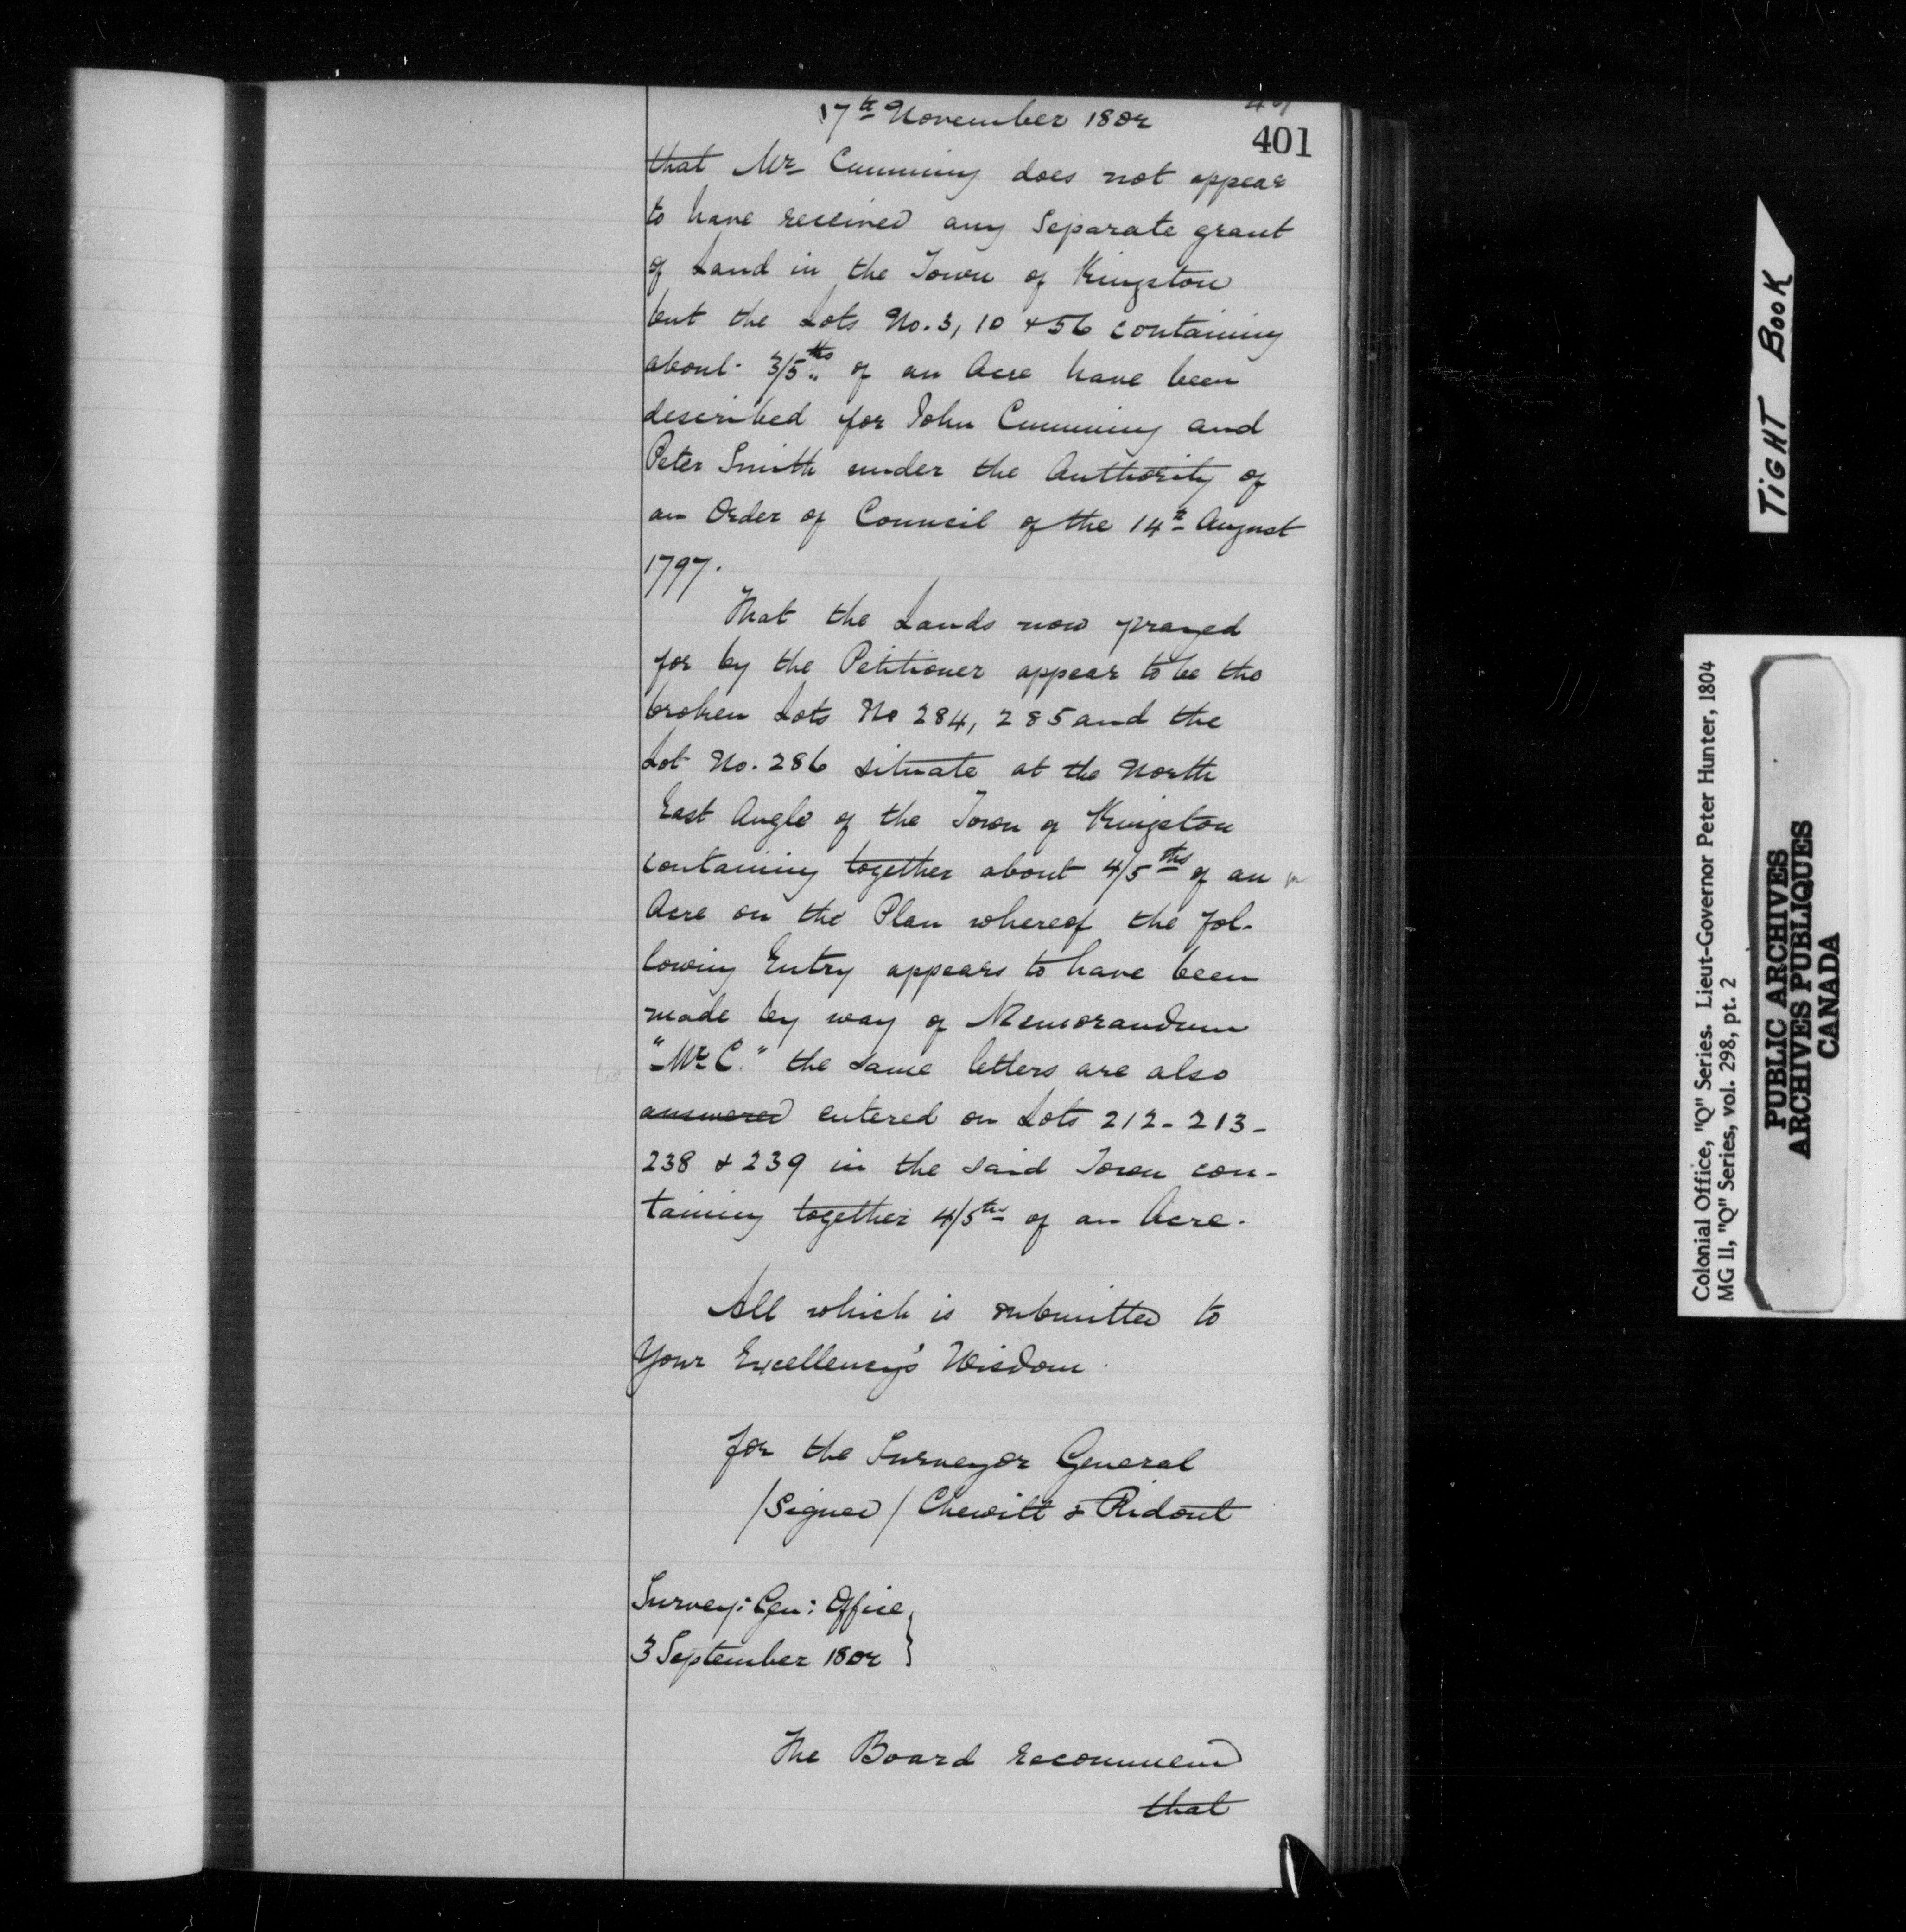 17th November 1802
401
that Mr Cumming does not appear
to have received any Separate grant
of Land in the Town of Kingston
but the Lots No. 3, 10 & 56 containing
about 3/5ths of an Acre have been
described for John Cumming and
Peter Smith under the Authority of
an Order of Council of the 14th August
1797.
That the Lands now prayed
for by the Petitioner appear to be the
broken Lots No 284, 285 and the
Lot No. 286 situate at the North
East Angle of the Town of Kingston
containing together about 4/5ths of an
Acre on the Plan whereof the fol-
lowing Entry appears to have been
made by way of Memorandum
"Mr C." the same letters are also
answered entered on Lots 212-213-
238 & 239 in the said Town con-
taining together 4/5ths of an Acre.
All which is submitted to
Your Excellency's Wisdom.
for the Surveyor General
/Signed/ Chewitt & Ridout
Survey: Gen: Office
3 September 1802
The Board recommend
that
TIGHT BOOK
Colonial Office, "Q" Series. Lieut-Governor Peter Hunter, 1804
MG II, "Q" Series, vol. 298, pt. 2
PUBLIC ARCHIVES
ARCHIVES PUBLIQUES
CANADA